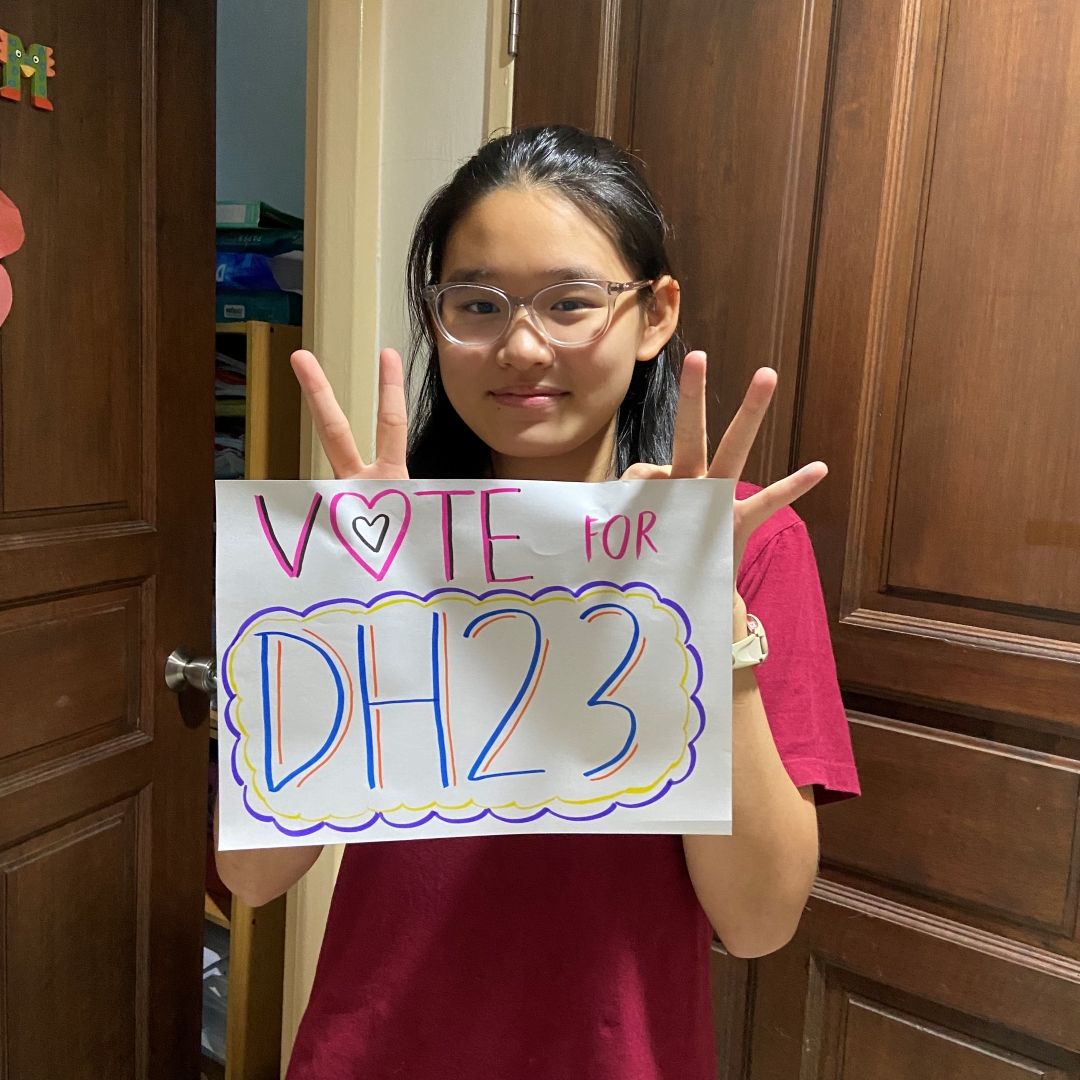 M
VOTE FOR
DH23